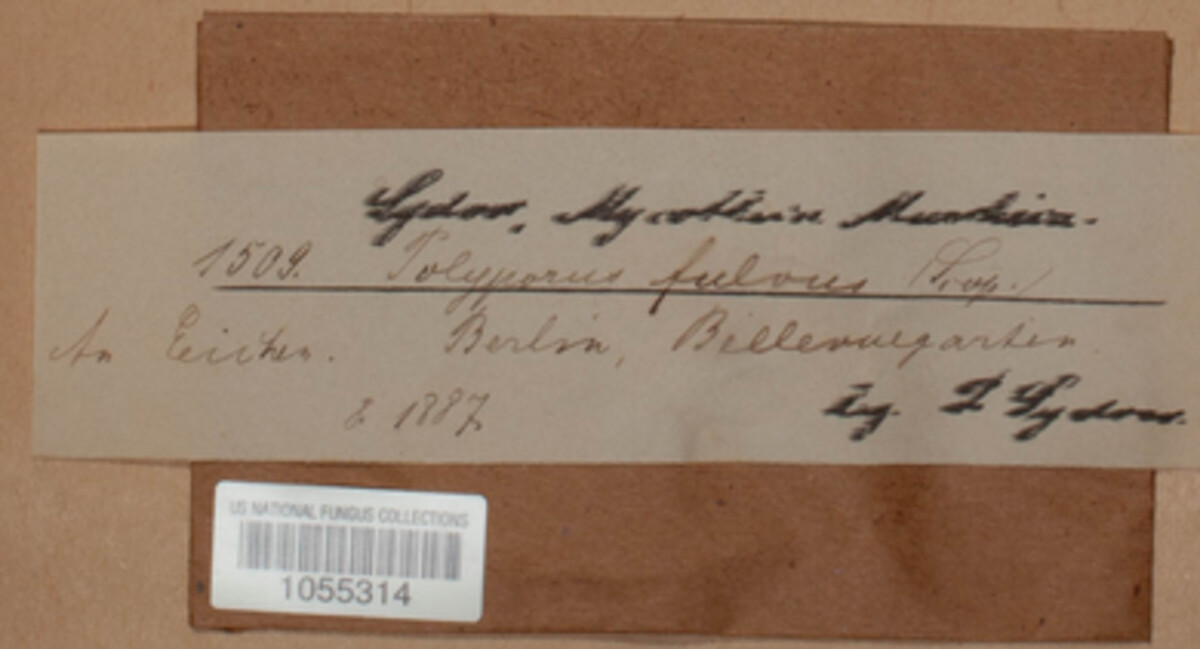 Sydow, Mycotheca Marchica.
1509. Polyporus fulvus (Scop.)
An Eichen. Berlin, Bellevuegarten
8 1887.
leg. P Sydow.
US NATIONAL FUNGUS COLLECTIONS
1055314